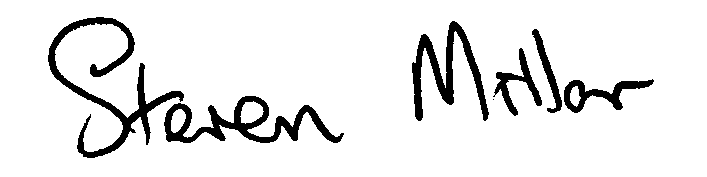 Steven Millar